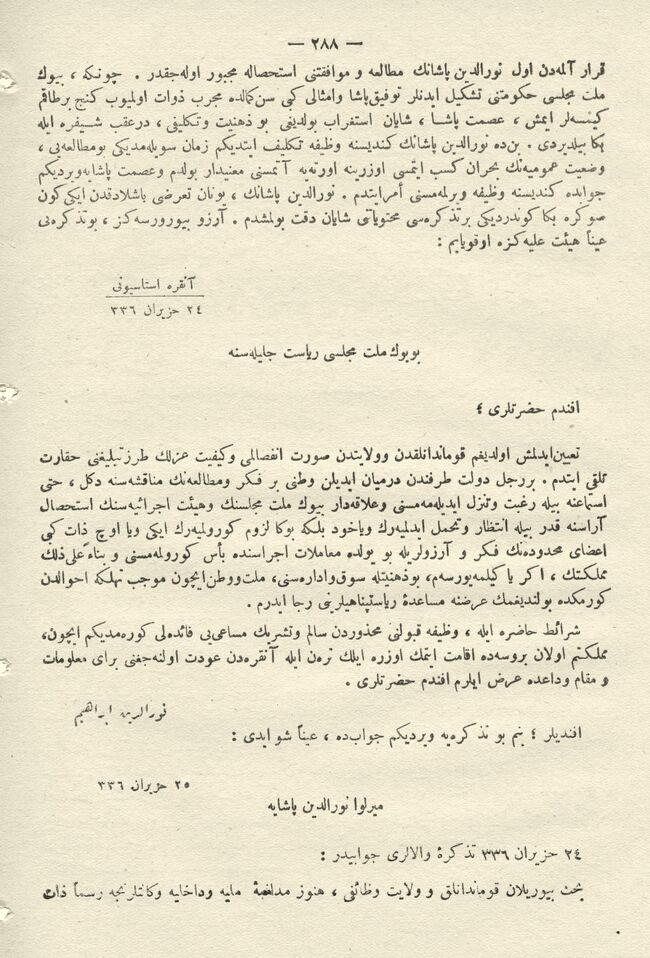 — ٢٨٨ —
قرار آلمه‌دن اول نورالدين پاشانك مطالعه و موافقتنى استحصاله مجبور اوله‌جقدر . چونكه ، بيوك
ملت مجلسى حكومتنى تشكيل ايدنلر توفيق پاشا وامثالى كبى سن كمالده مجرب ذوات اولميوب كنج برطاقم
كيمسه‌لر ايمش ، عصمت پاشا ، شايان استغراب بولديغى بو ذهنيت وتكليفى ، درعقب شيفره ايله
بكا بيلديردى . بن‌ده نورالدين پاشانك كنديسنه وظيفه تكليف ايتديكم زمان سويله‌مديكى بومطالعه‌يى ،
وضعيت عموميه‌نك بحران كسب ايتمسى اوزرينه اورته‌يه آتمسنى معنيدار بولدم وعصمت پاشايه‌ويرديكم
جوابده كنديسنه وظيفه ويرلمه‌مسنى أمرايتدم . نورالدين پاشانك ، يونان تعرضى باشلادقدن ايكى كون
صوكره بكا كوندرديكى برتذكره‌سى محتوياتى شايان دقت بولمشدم . آرزو بيوررسه‌كز ، بوتذكره‌يى
عيناً هيئت عليه‌كزه اوقويايم :
آنقره استاسيونى
٢٤ حزيران ٣٣٦
بويوك ملت مجلسى رياست جليله‌سنه
افندم حضرتلرى ؛
تعيين ايدلمش اولديغم قوماندانلقدن وولايتدن صورت انفصالمى وكيفيت عزلك طرز تبليغنى حقارت
تلقى ايتدم . بررجل دولت طرفندن درميان ايديلن وطنى بر فكر ومطالعه‌نك مناقشه‌سنه دكل ، حتى
استماعنه بيله رغبت وتنزل ايديله‌مه‌مسنى وعلاقه‌دار بيوك ملت مجلسنك وهيئت اجرائيه‌سنك استحصال
آراسنه قدر بيله انتظار وتحمل ايدلميه‌رك وياخود بلكه بوكا لزوم كورولميه‌رك ايكى ويا اوچ ذات كبى
اعضاى محدوده‌نك فكر و آرزولريله بو يولده معاملات اجراسنده بأس كورولمه‌مسنى و بناءً على ذلك
مملكتك ، اكر ياكيلمه‌يورسه‌م، بوذهنيتله سوق واداره‌سنى، ملت ووطن ايچون موجب تهلكه احوالدن
كورمكده بولنديغمك عرضنه مساعدهٔ رياستپناهيلرينى رجا ايدرم .
شرائط حاضره ايله ، وظيفه قبولنى محذوردن سالم وتشريك مساعى‌يى فائده‌لى كوره‌مديكم ايچون،
مملكتم اولان بروسه‌ده اقامت ايتمك اوزره ايلك ترەن ايله آنقره‌دن عودت اولنه‌جغنى براى معلومات
و مقام وداعده عرض ايلرم افندم حضرتلرى .
نورالدين ابراهيم
افنديلر ؛ بنم بو تذكره‌يه ويرديكم جواب‌ده ، عيناً شو ايدى :
٢٥ حزيران ٣٣٦
ميرلوا نورالدين پاشايه
٢٤ حزيران ٣٣٦ تذكرهٔ والالرى جوابيدر :
بحث بيوريلان قوماندانلق و ولايت وظائفى ، هنوز مدافعهٔ مليه وداخليه وكالتلرنجه رسماً ذات